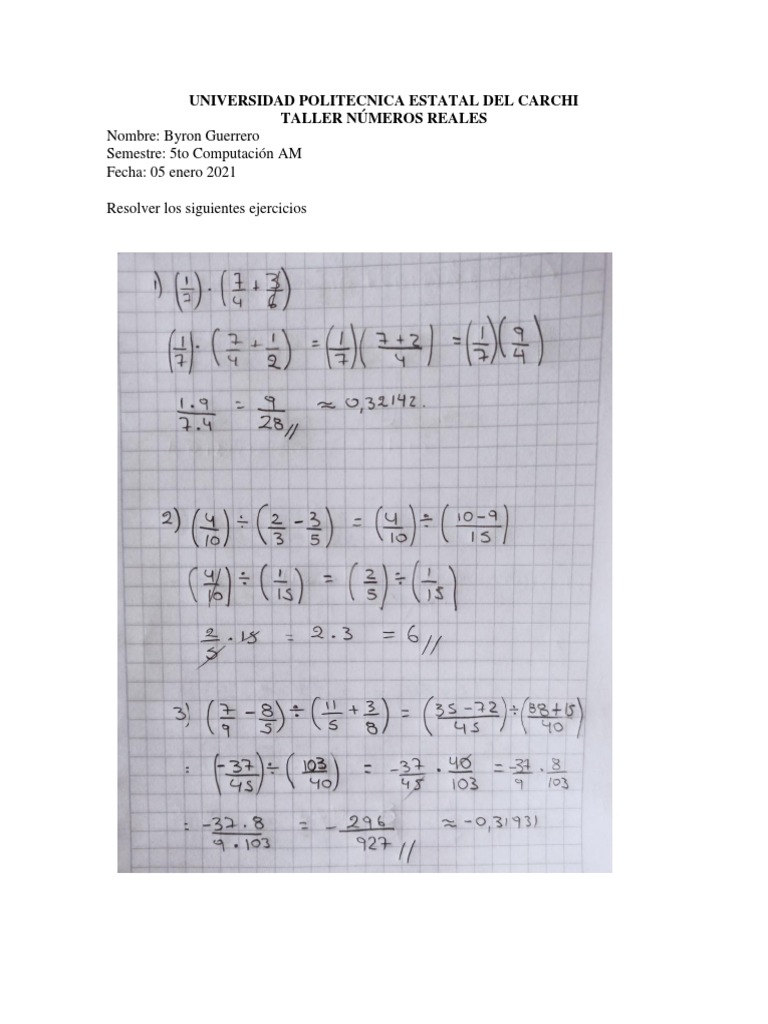 UNIVERSIDAD POLITECNICA ESTATAL DEL CARCHI
TALLER NÚMEROS REALES
Nombre: Byron Guerrero
Semestre: 5to Computación AM
Fecha: 05 enero 2021
Resolver los siguientes ejercicios
1) (1/7) · (7/4 + 3/6)
(1/7) · (7/4 + 1/2) = (1/7) (7+2/4) = (1/7) (9/4)
1·9/7·4 = 9/28 // ≈ 0,32142.
2) (4/10) ÷ (2/3 - 3/5) = (4/10) ÷ (10-9/15)
(4/10) ÷ (1/15) = (2/5) ÷ (1/15)
2/5 · 15 = 2 · 3 = 6 //
3) (7/9 - 8/5) ÷ (11/5 + 3/8) = (35-72/45) ÷ (88+15/40)
= (-37/45) ÷ (103/40) = -37/45 · 40/103 = -37/9 · 8/103
= -37·8/9·103 = - 296/927 // ≈ -0,31931